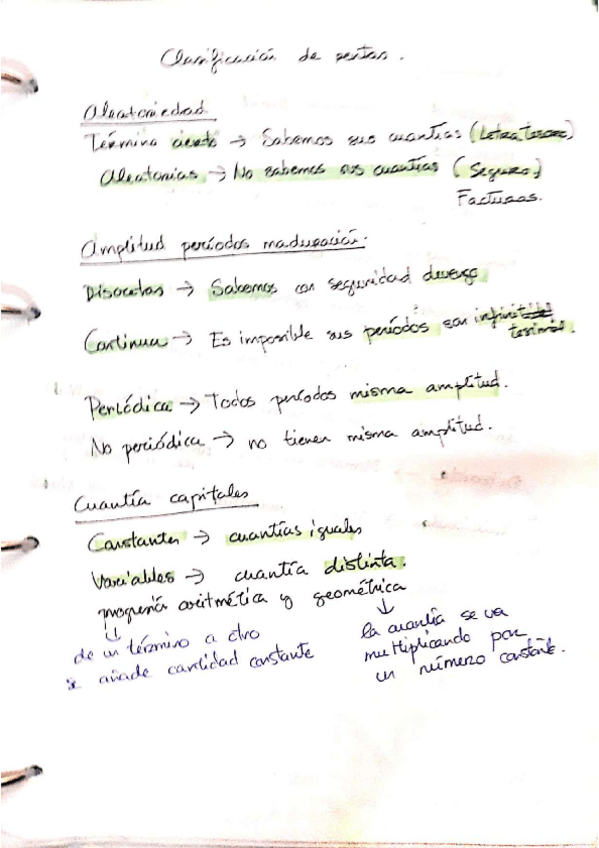 Clasificación de rentas.
Aleatoriedad
Término cierto → Sabemos sus cuantías (Letra Tesoro)
Aleatorias → No sabemos sus cuantías (Seguro,)
Facturas.
Amplitud períodos maduración:
Discretas → Sabemos con seguridad devengo
Continua → Es imposible sus períodos son infinit
tesimal.
Periódica → Todos períodos misma amplitud.
No periódica → no tienen misma amplitud.
Cuantía capitales
Constantes → cuantías iguales
Variables → cuantía distinta.
progresión aritmética y geométrica
de un término a otro
se añade cantidad constante
la cuantía se va
multiplicando por
un número constante.